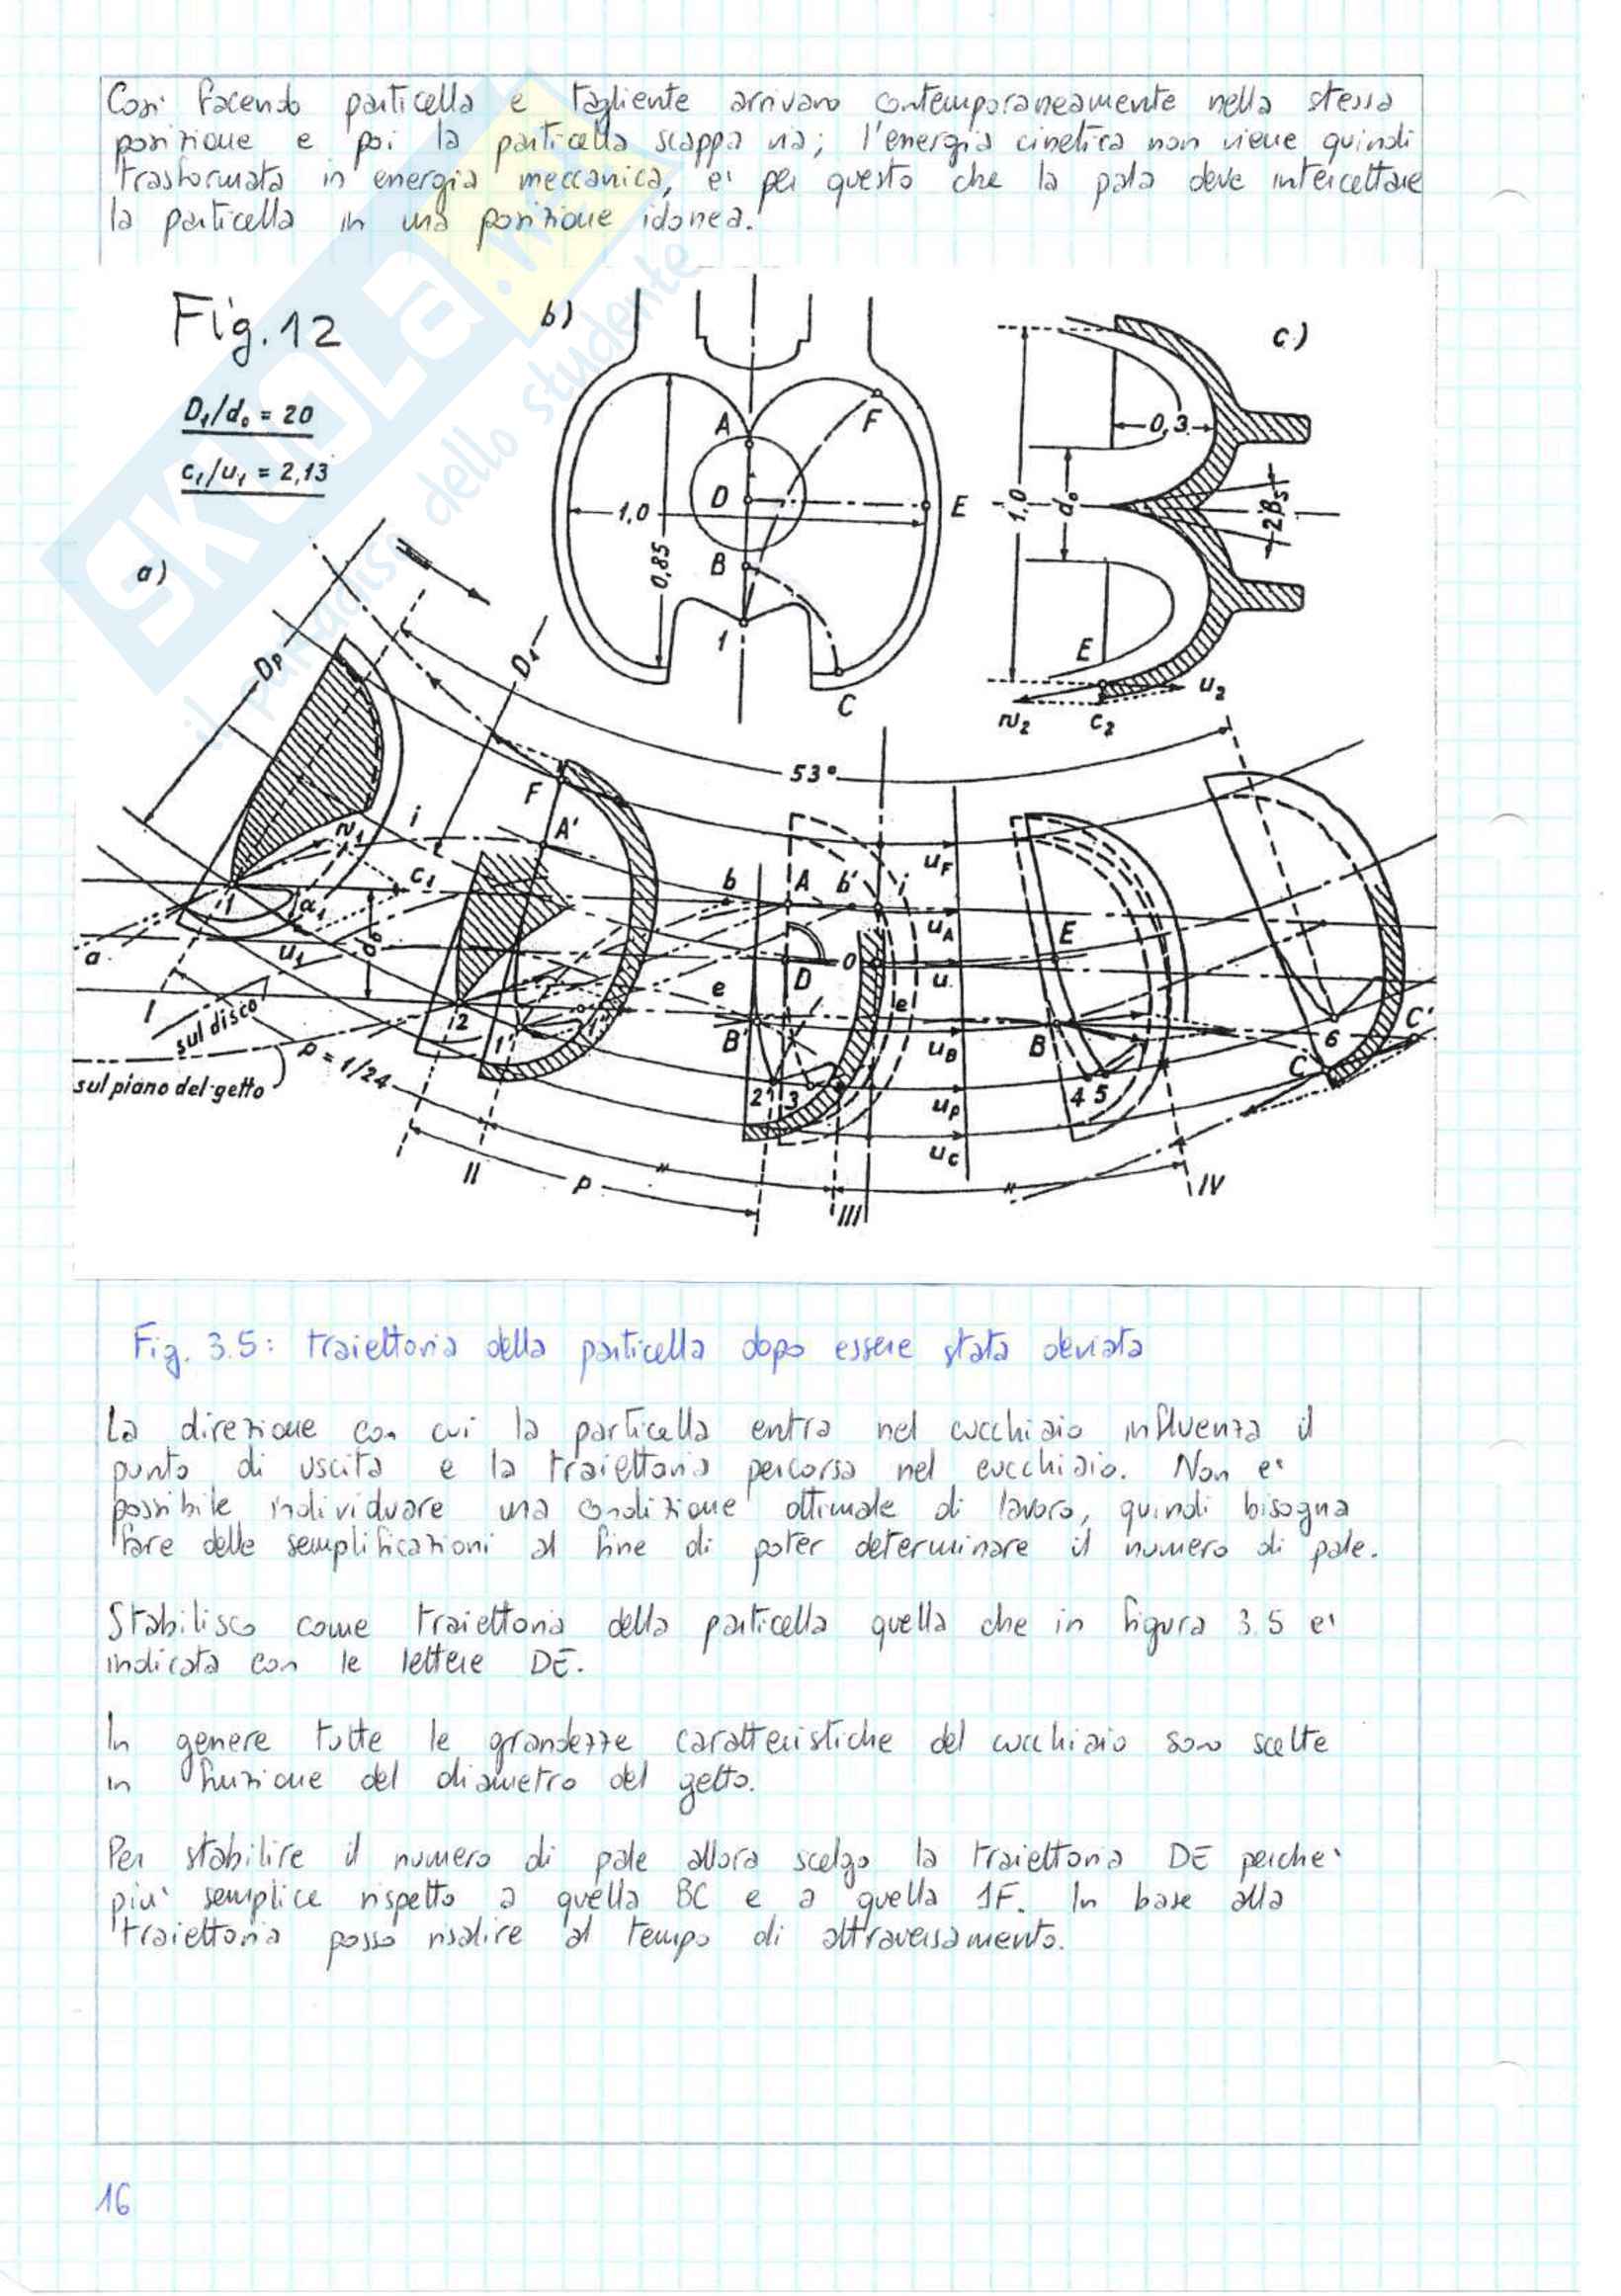 Così facendo particella e tagliente arrivano contemporaneamente nella stessa
posizione e poi la particella scappa via; l'energia cinetica non viene quindi
trasformata in energia meccanica, e' per questo che la pala deve intercettare
la particella in una posizione idonea.
SKUOLA.net
il paradiso dello studente
Fig. 12
D₁/d₀ = 20
c₁/u₁ = 2,13
a)
b)
A
F
D
1,0
E
B
0,85
1
C
c)
0,3
1,0
d₀
2βs
E
u₂
w₂
c₂
Dp
D₁
53°
F
A'
i
w₁
c₁
1
α₁
u₁
d₀
a
I
sul disco
sul piano del getto
p = 1/24
2
1'
II
p
b
A
b'
i
uF
uA
D
O
u
e
e'
B'
uB
2'
3
up
uc
III
E
B
4 5
6
C'
C
IV
Fig. 3.5: traiettoria della particella dopo essere stata deviata
La direzione con cui la particella entra nel cucchiaio influenza il
punto di uscita e la traiettoria percorsa nel cucchiaio. Non e'
possibile individuare una condizione ottimale di lavoro, quindi bisogna
fare delle semplificazioni al fine di poter determinare il numero di pale.
Stabilisco come traiettoria della particella quella che in figura 3.5 e'
indicata con le lettere DE.
In genere tutte le grandezze caratteristiche del cucchiaio sono scelte
in funzione del diametro del getto.
Per stabilire il numero di pale allora scelgo la traiettoria DE perche'
piu' semplice rispetto a quella BC e a quella 1F. In base alla
traiettoria posso risalire al tempo di attraversamento.
16